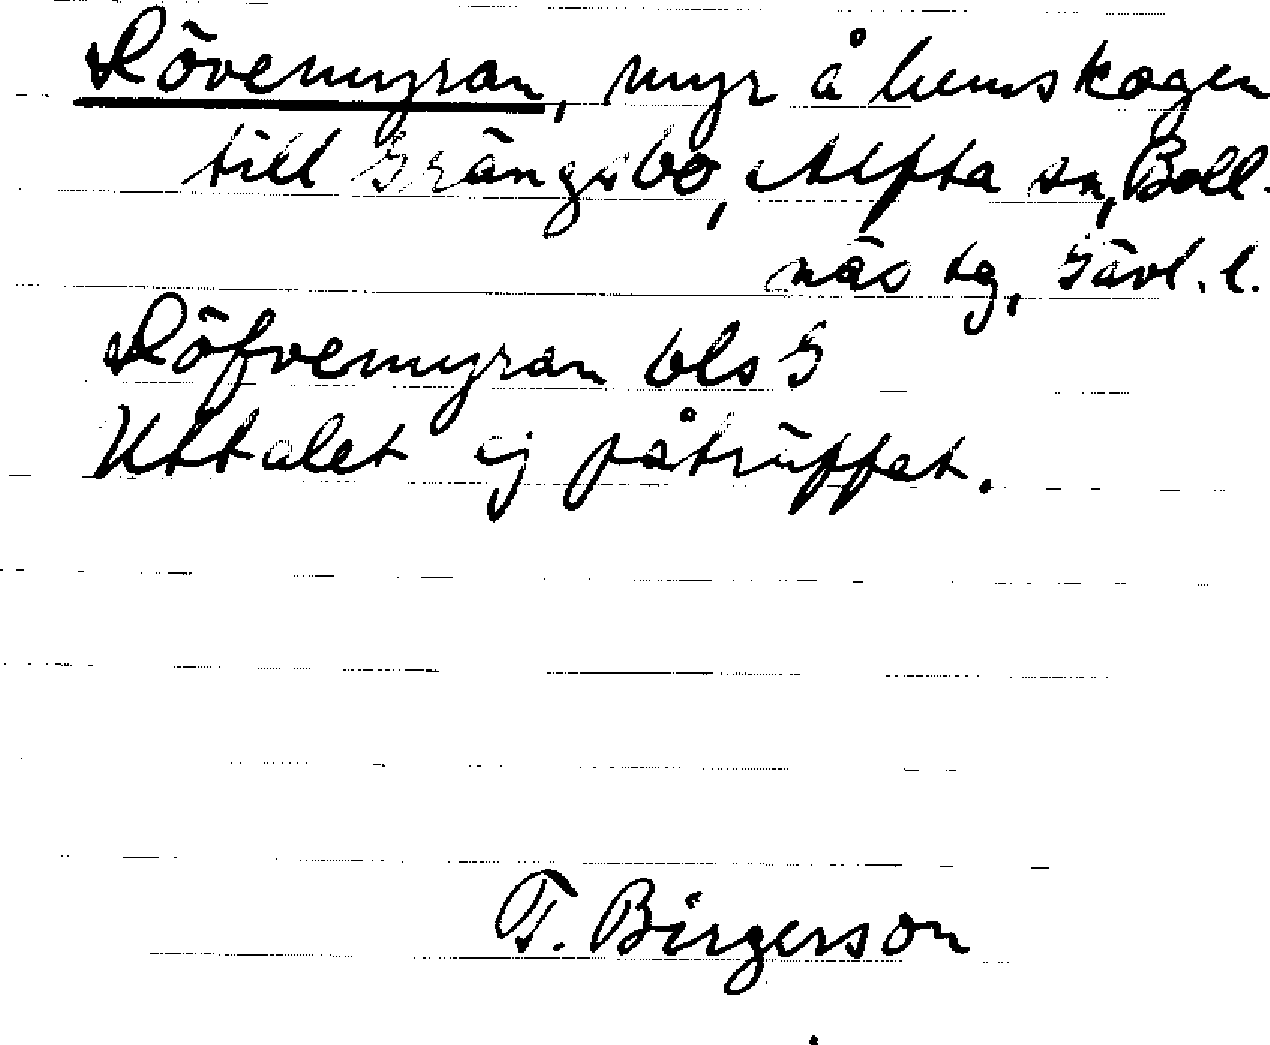 Lövemyran, myr å hemskogen
till Grängsbo, Alfta sn, Boll-
näs tg, Gävl. l.
Löfvemyran bls G
Uttalet ej påträffat.
T. Birgerson